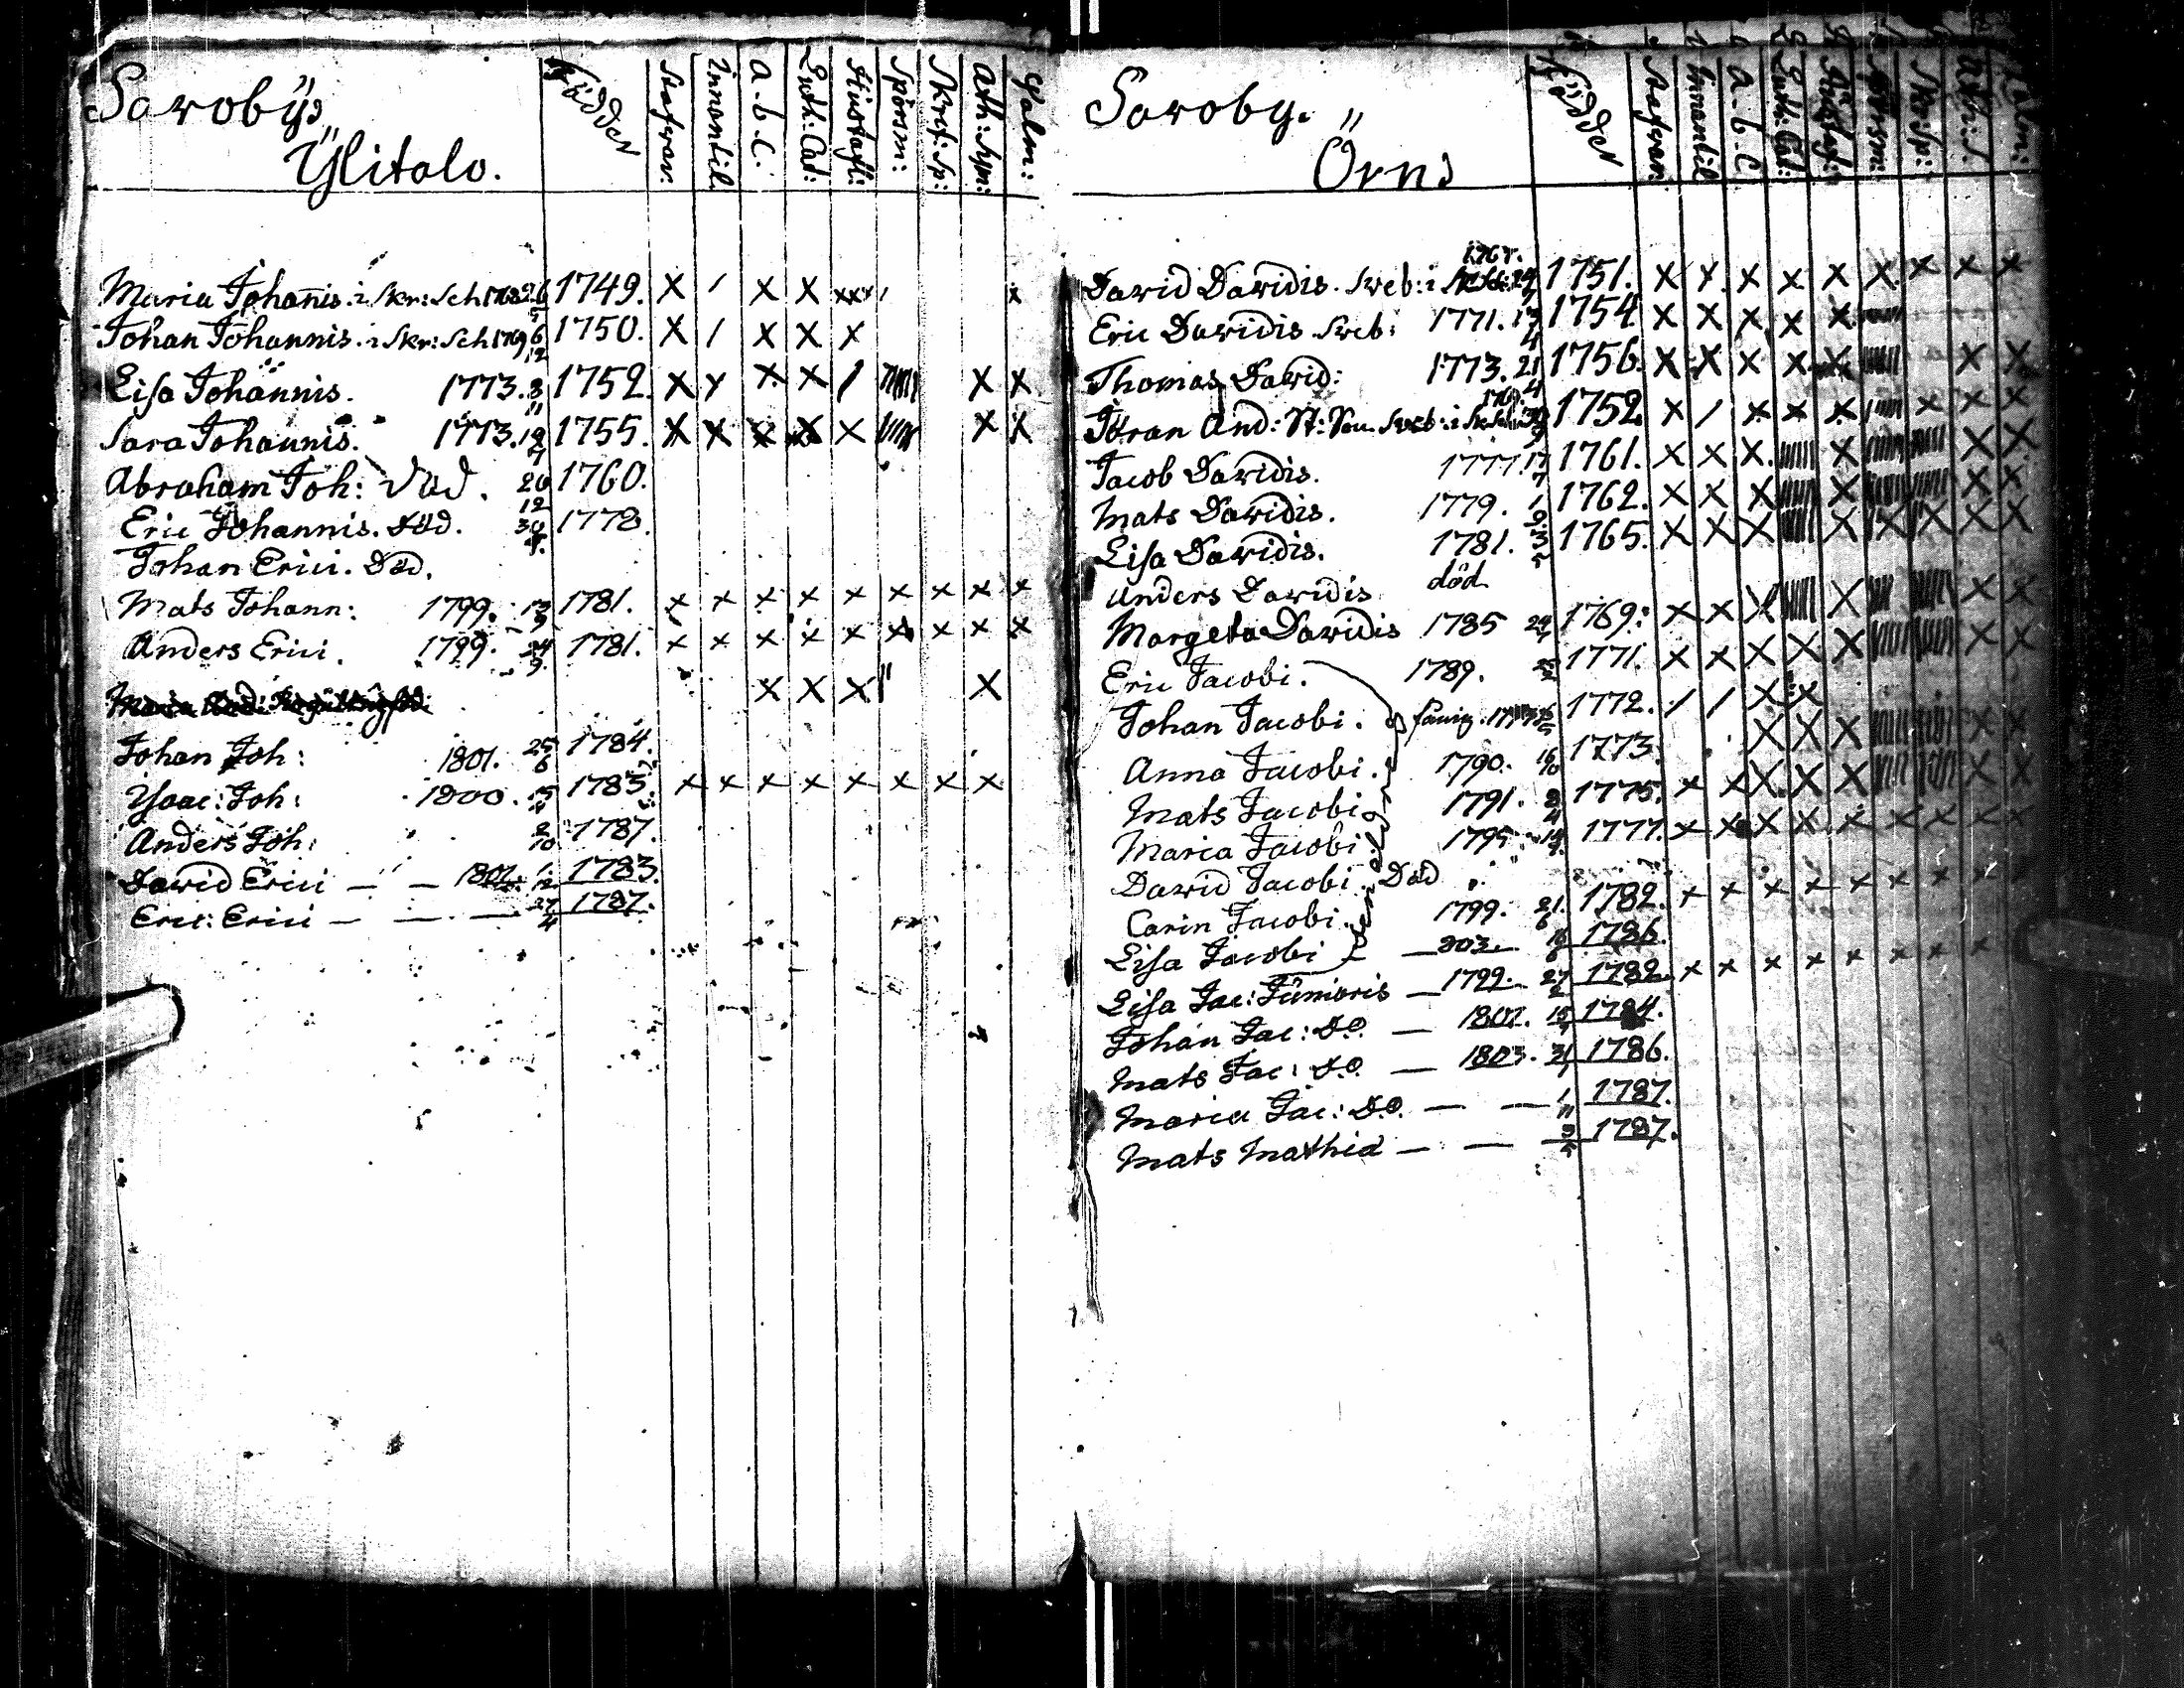 Saroby,,
Ylitalo.
Födden
Stafvan:
Innantil
a. b. C.
Luth: Cat:
Hustafl:
Spörsm:
Skrif: Sp:
Ath: Sym:
Psalm:
Maria Johannis. i Skr: Sch 1768 26 1749. X / X X xxx / x
Johan Johannis. i Skr: Sch 1769 6/12 1750. X / X X X
Lisa Johannis. 1773. 3/11 1752. X X X X / X X
Sara Johannis. 1773. 1755. X X X X X X X
Abraham Joh: död. 20/12 1760.
Eric Johannis. död. 30 1778.
Johan Erici. Död.
Mats Johann: 1799. 13/9 1781. x x x x x x x x x
Anders Erici. 1799. 24/9 1781. x x x x x x x x x
Maria X X X // X
Johan Joh: 1801. 25/6 1784.
Ysaac: Joh: 1800. 1783. x x x x x x x x
Anders Joh: 2/10 1787.
David Erici — — 1802. 1/12 1783.
Eric: Erici — — — 27/4 1787.
Saroby. ,,
Örns
Födden
Stafvan:
Innantil
a. b. C.
Luth: Cat:
Hustafl:
Spörsm:
Skr: Sp:
Ath: S:
Psalm:
David Davidis. Sveb: i 1751. X X X X X X X X X
Eric Davidis Sveb: 1771. 1754 X X X X X
Thomas David: 1773. 21/4 1756. X X X X X X X
Jöran And: 1752. X / X X X X X X
Jacob Davidis. 1777. 17/7 1761. X X X X X X
Mats Davidis. 1779. 1/9 1762. X X X X X X
Lisa Davidis. 1781. 3/5 1765. X X X X X X X X
Anders Davidis död
Margeta Davidis 1785 1769: X X X X X X
Eric Jacobi. 1789. 1771. X X X X X
Johan Jacobi. 1772. / / X X
Anna Jacobi. 1790. 16/10 1773. X X X X X
Mats Jacobi 1791. 8/4 1775. x x X X X X X
Maria Jacobi 1795. 1777. x x x x x x x x x
David Jacobi. Död
Carin Jacobi. 1799. 21/6 1782. x x x x x x x x
Lisa Jacobi — 803. 16/6 1786.
Lisa Jac: Junioris — 1799. 27/2 1782. x x x x x x x x
Johan Jac: Do. — 1802. 15 1784.
Mats Jac: Do. — 1803. 31/1 1786.
Maria Jac: Do. — — 1/11 1787.
Mats Mathia — — 3/5 1787.